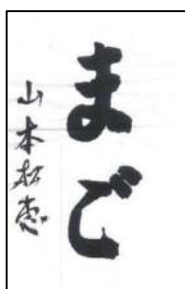 まご
山本松恵